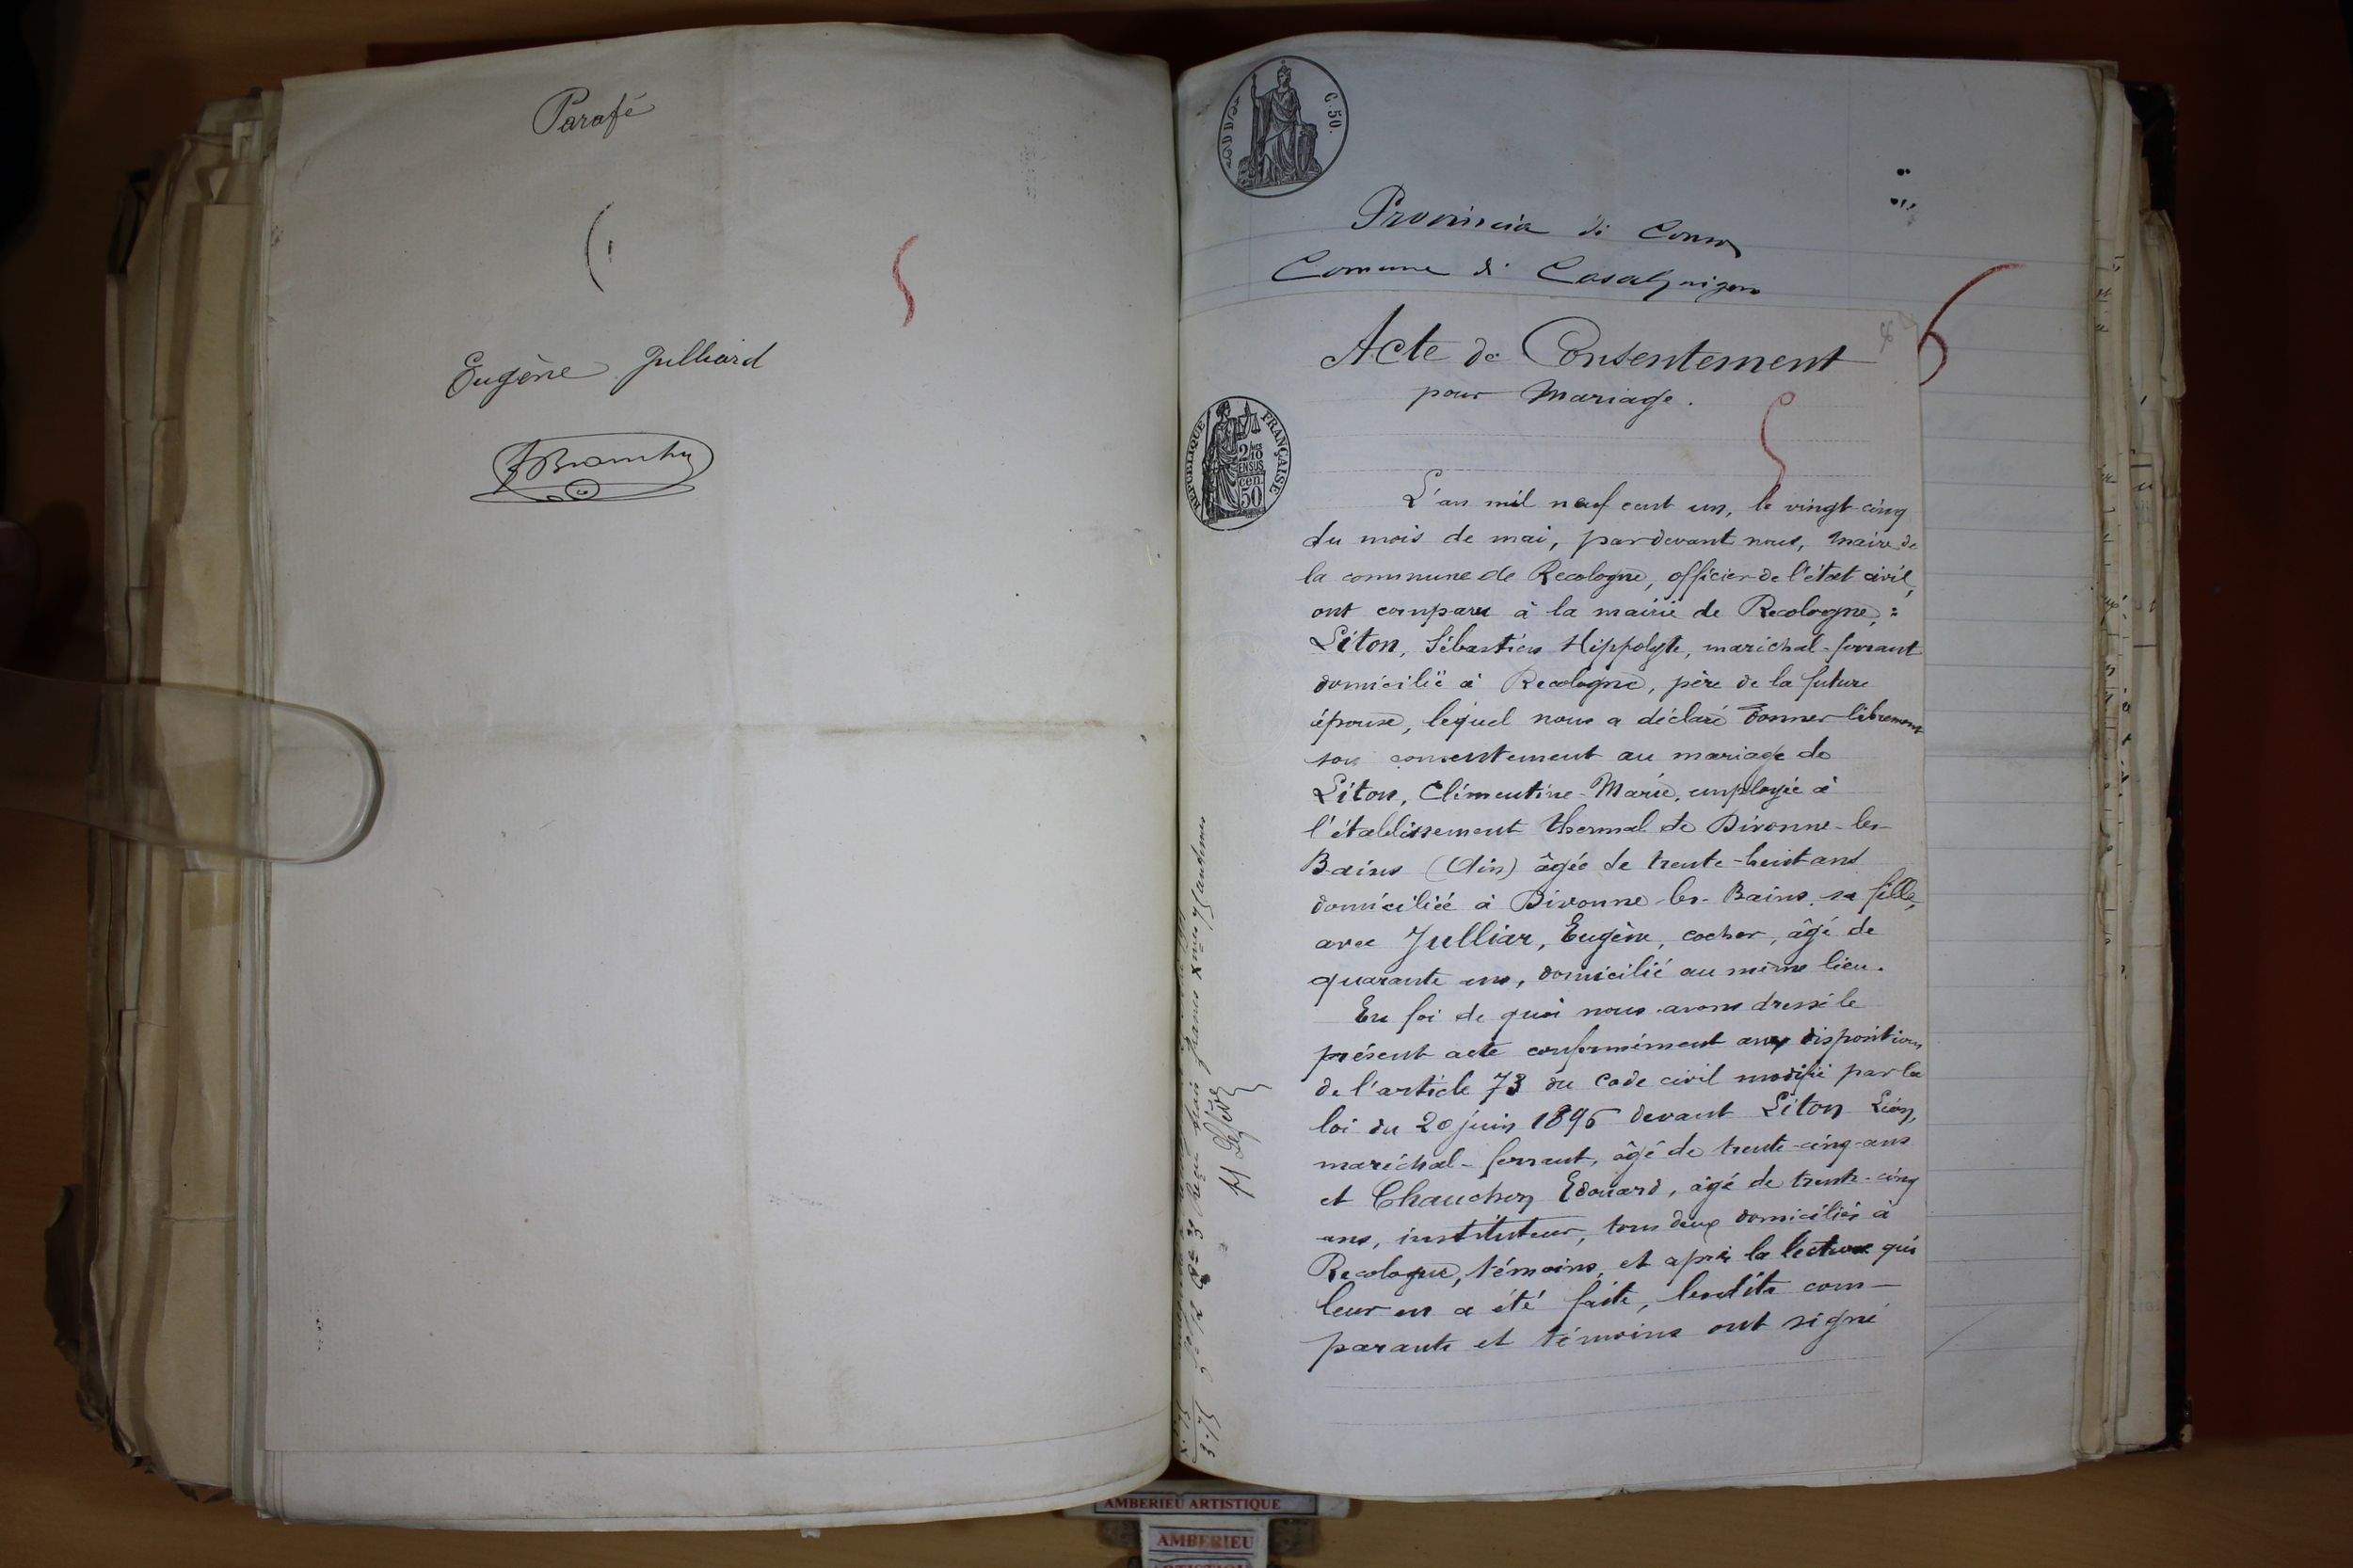 Parafé
Eugène Julliard
C. 50.
Provincia di Como
Comune di
Acte de Consentement
pour Mariage.
RÉPUBLIQUE FRANÇAISE
2/10
EN SUS
50 cen
L'an mil neuf cent un, le vingt-cinq
du mois de mai, pardevant nous, maire de
la commune de Recologne, officier de l'état civil,
ont comparu à la mairie de Recologne :
Liton, Sébastien Hippolyte, maréchal-ferrant
domicilié à Recologne, père de la future
épouse, lequel nous a déclaré donner librement
son consentement au mariage de
Liton, Clémentine-Marie, employée à
l'établissement thermal de Divonne-les-
Bains (Ain) âgée de trente-huit ans
domiciliée à Divonne-les-Bains, sa fille,
avec Julliar, Eugène, cocher, âgé de
quarante ans, domicilié au même lieu.
En foi de quoi nous avons dressé le
présent acte conformément aux dispositions
de l'article 73 du Code civil modifié par la
loi du 20 juin 1896 devant Liton Léon,
maréchal-ferrant, âgé de trente-cinq-ans
et Chauchon Edouard, âgé de trente-cinq
ans, instituteur, tous deux domiciliés à
Recologne, témoins, et après la lecture qui
leur en a été faite, lesdits com-
parants et témoins ont signé
AMBERIEU ARTISTIQUE
AMBERIEU
ARTISTIQUE